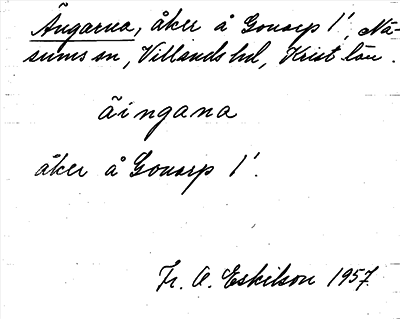 Ängarna, åker å Gonarp 1¹, Nä-
sums sn, Villands hd, Krist län.
äingana
åker å Gonarp 1¹.
Fr. A. Eskilson 1957